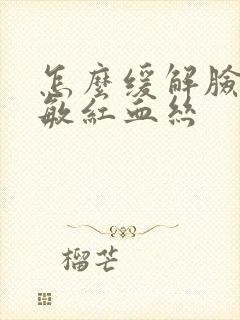 怎麼缓解臉
敏紅血丝
榴芒